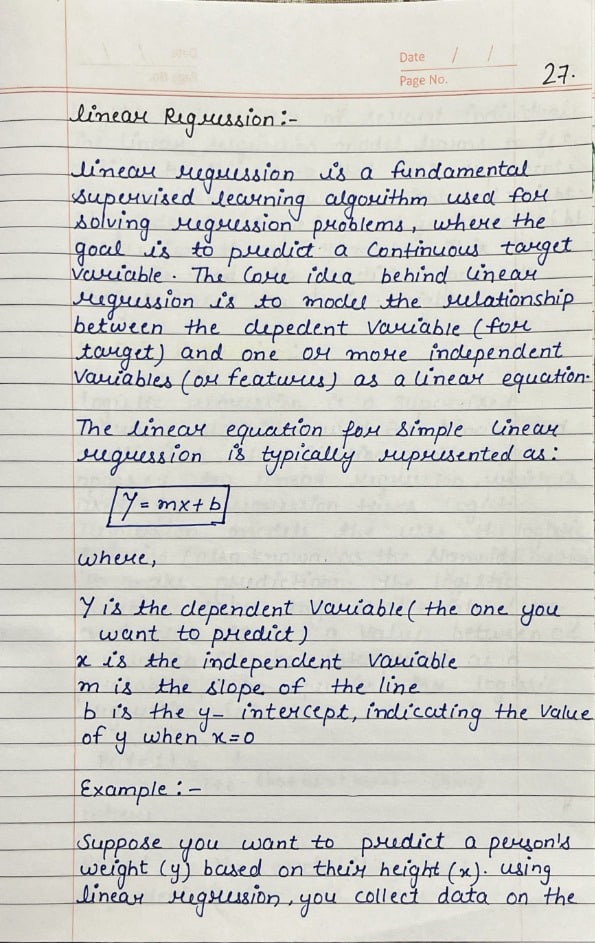 Date / /
Page No.
27.
linear Regression :-
linear regression is a fundamental
supervised learning algorithm used for
solving regression problems, where the
goal is to predict a Continuous target
Variable. The Core idea behind linear
regression is to model the relationship
between the depedent Variable (for
target) and one or more independent
Variables (or features) as a linear equation.
The linear equation for Simple linear
regression is typically represented as:
Y = mx+b
where,
Y is the dependent Variable ( the one you
want to predict )
x is the independent Variable
m is the slope of the line
b is the y- intercept, indicating the Value
of y when x=0
Example :-
Suppose you want to predict a person's
weight (y) based on their height (x). using
linear regression, you collect data on the